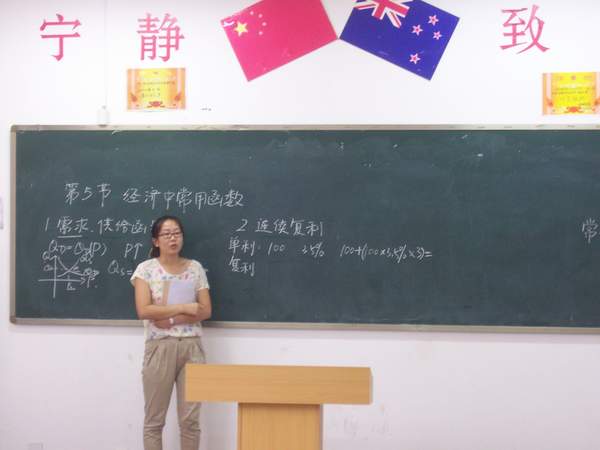 宁 静 致
第5节 经济中常用函数
1 需求.供给函 2 连续复利
QD=QD(P) P↑ 单利: 100 3.5% 100+(100×3.5%×3)=
Qs= 复利
常